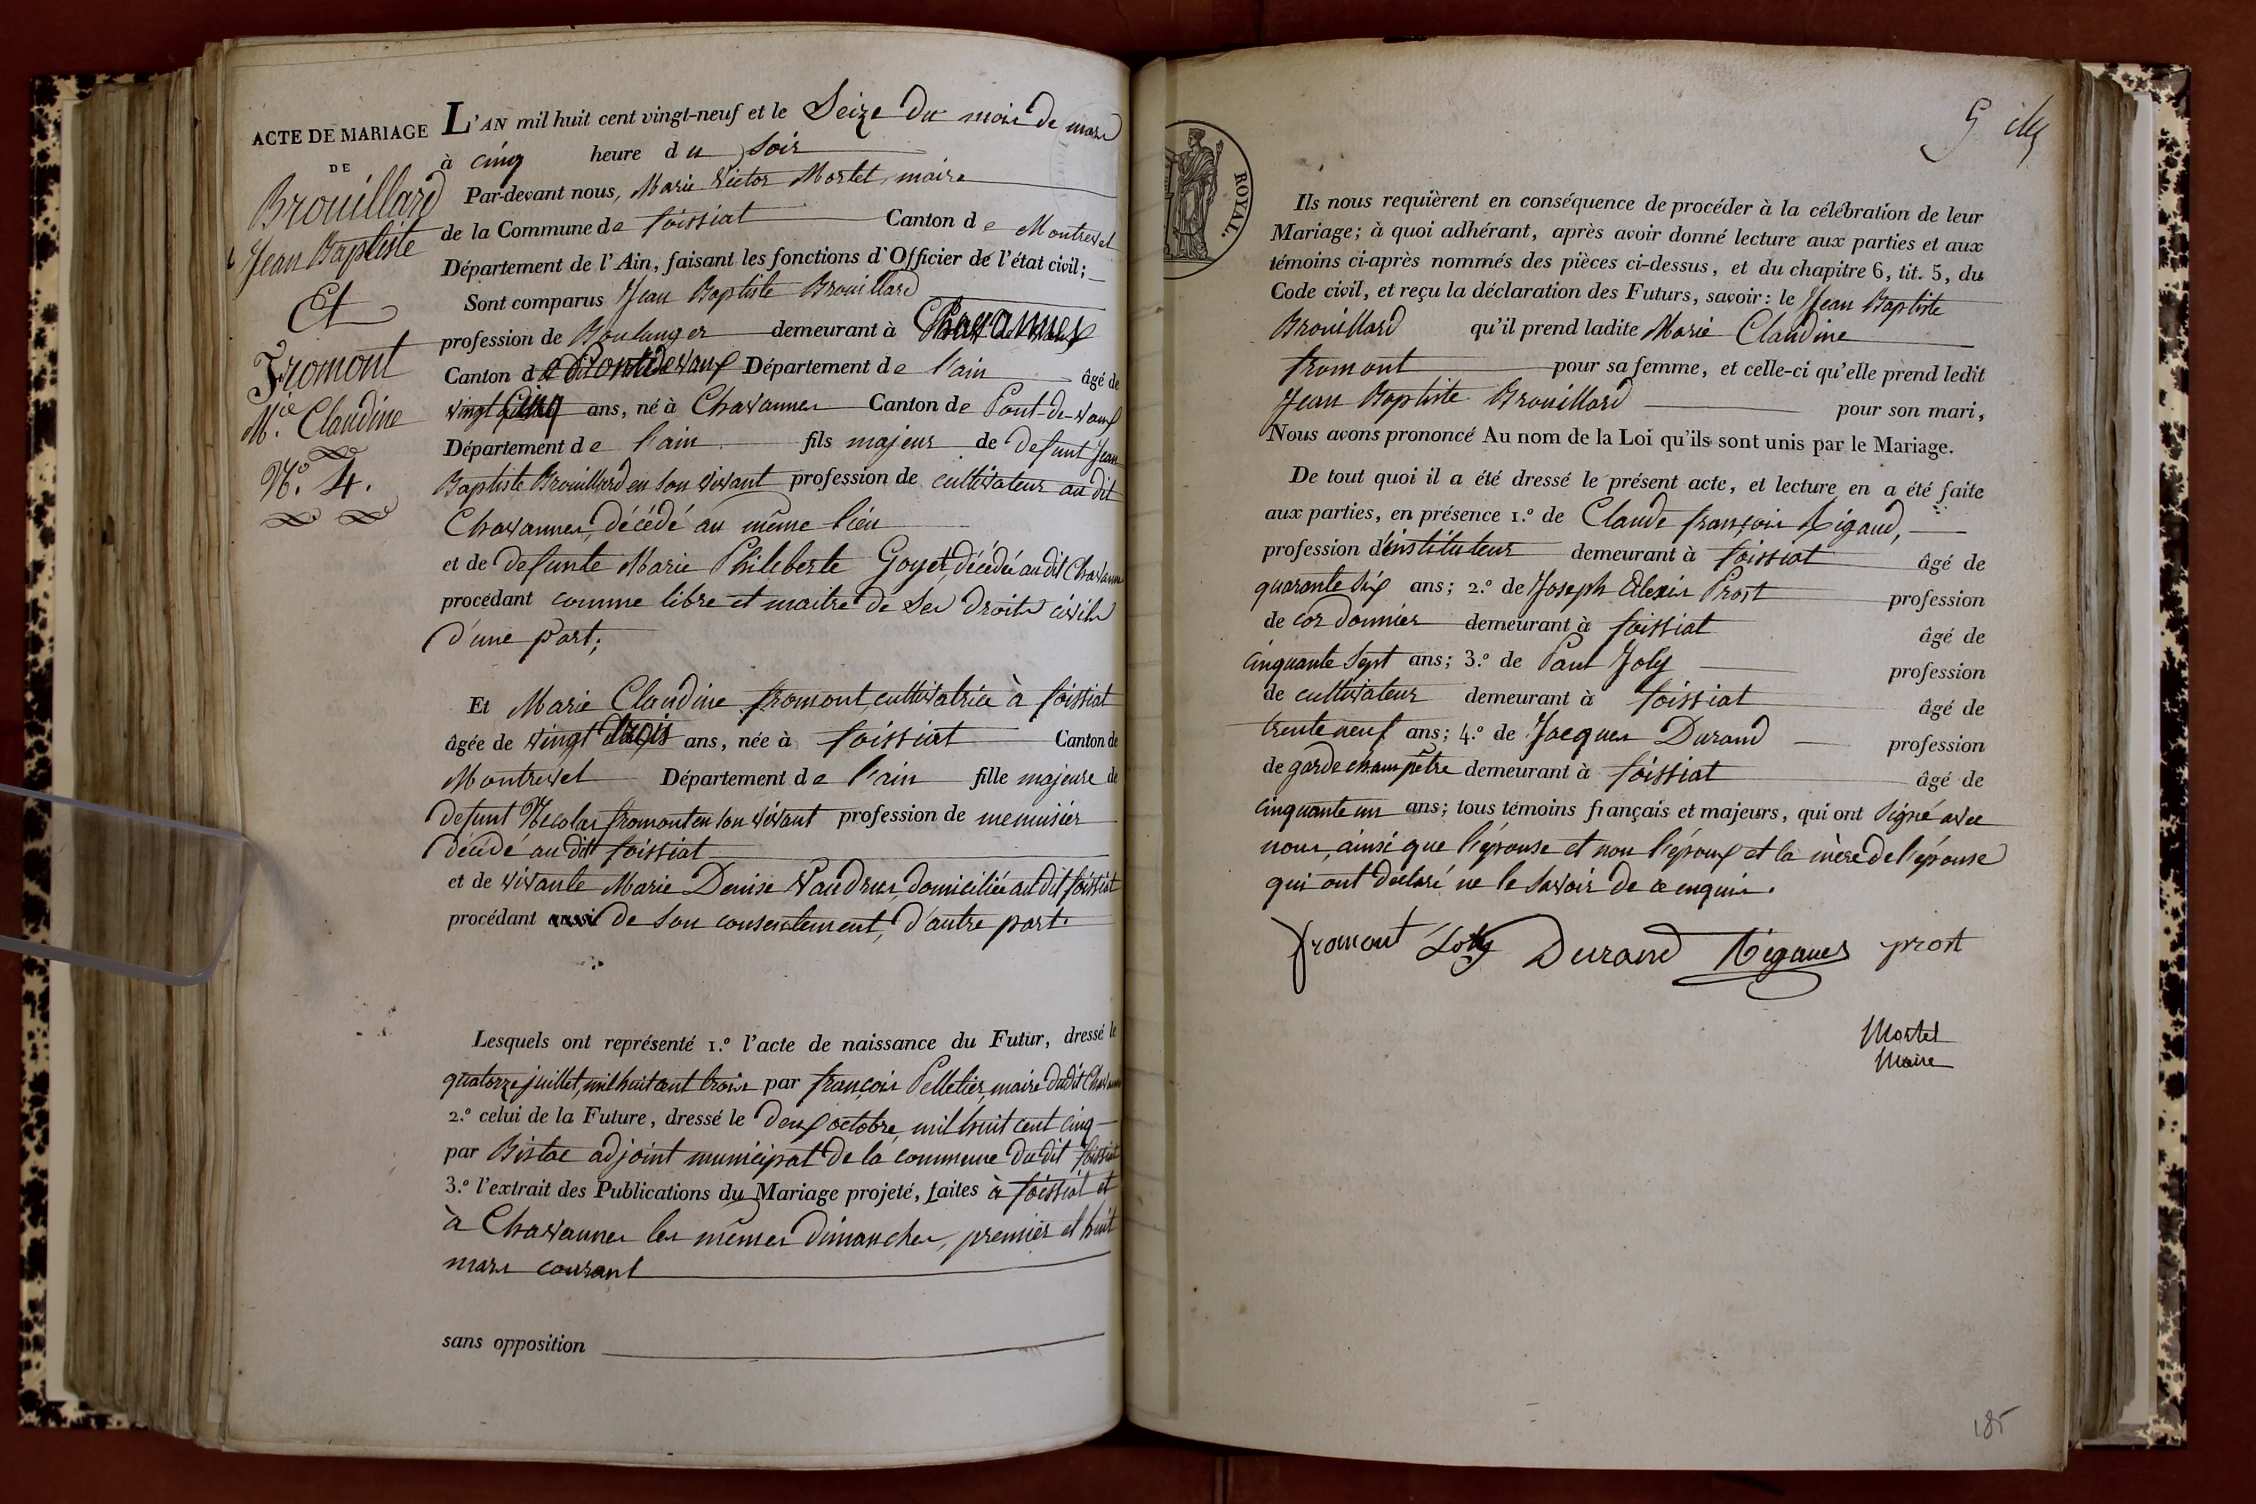 ACTE DE MARIAGE
DE
Brouillard
Jean Baptiste
Et
Fromont
Mie. Claudine
No. 4.
L'AN mil huit cent vingt-neuf et le Seize du mois de mars
à cinq heure du soir
Par-devant nous, Marie Victor Mortet, maire
de la Commune de foissiat Canton de Montrevel
Département de l'Ain, faisant les fonctions d'Officier de l'état civil;
Sont comparus Jean Baptiste Brouillard
profession de Boulanger demeurant à Chavannes
Canton de Pontdevaux Département de l'ain âgé de
vingt Cinq ans, né à Chavannes Canton de Pont-de-vaux
Département de l'ain fils majeur de defunt Jean
Baptiste Brouillard en son vivant profession de cultivateur au dit
Chavannes, décédé au même lieu
et de defunte Marie Philiberte Goyet, décédée audit Chavannes
procédant comme libre et maitre de ses droits civils
d'une part;
Et Marie Claudine fromont, cultivatrice à foissiat
âgée de vingt trois ans, née à foissiat Canton de
Montrevel Département de l'ain fille majeure de
defunt Nicolas fromont en son vivant profession de menuisier
décédé au dit foissiat
et de vivante Marie Denise Vaudrus, domiciliée au dit foissiat
procédant de son consentement, d'autre part.
Lesquels ont représenté 1.º l'acte de naissance du Futur, dressé le
quatorze juillet, mil huit cent trois par françois Pelletier, maire dudit Chavannes
2.º celui de la Future, dressé le deux octobre, mil huit cent cinq
par Bistac adjoint municipal de la commune du dit foissiat
3.º l'extrait des Publications du Mariage projeté, faites à foissiat et
à Chavannes les mêmes dimanches, premier et huit
mars courant
sans opposition
ROYAL.
Ils nous requièrent en conséquence de procéder à la célébration de leur
Mariage; à quoi adhérant, après avoir donné lecture aux parties et aux
témoins ci-après nommés des pièces ci-dessus, et du chapitre 6, tit. 5, du
Code civil, et reçu la déclaration des Futurs, savoir: le Jean Baptiste
Brouillard qu'il prend ladite Marie Claudine
fromont pour sa femme, et celle-ci qu'elle prend ledit
Jean Baptiste Brouillard pour son mari,
Nous avons prononcé Au nom de la Loi qu'ils sont unis par le Mariage.
De tout quoi il a été dressé le présent acte, et lecture en a été faite
aux parties, en présence 1.º de Claude françois Rigaud,
profession d'instituteur demeurant à foissiat âgé de
quarante six ans; 2.º de Joseph Alexis Prost profession
de cordonnier demeurant à foissiat âgé de
cinquante sept ans; 3.º de Paul Joly profession
de cultivateur demeurant à foissiat âgé de
trente neuf ans; 4.º de Jacques Durand profession
de garde champêtre demeurant à foissiat âgé de
cinquante un ans; tous témoins français et majeurs, qui ont signé avec
nous, ainsi que l'épouse et non l'époux et la mère de l'épouse
qui ont déclaré ne le savoir de ce enquis.
fromont Joly Durand Rigaud prost
Mortet
Maire
185